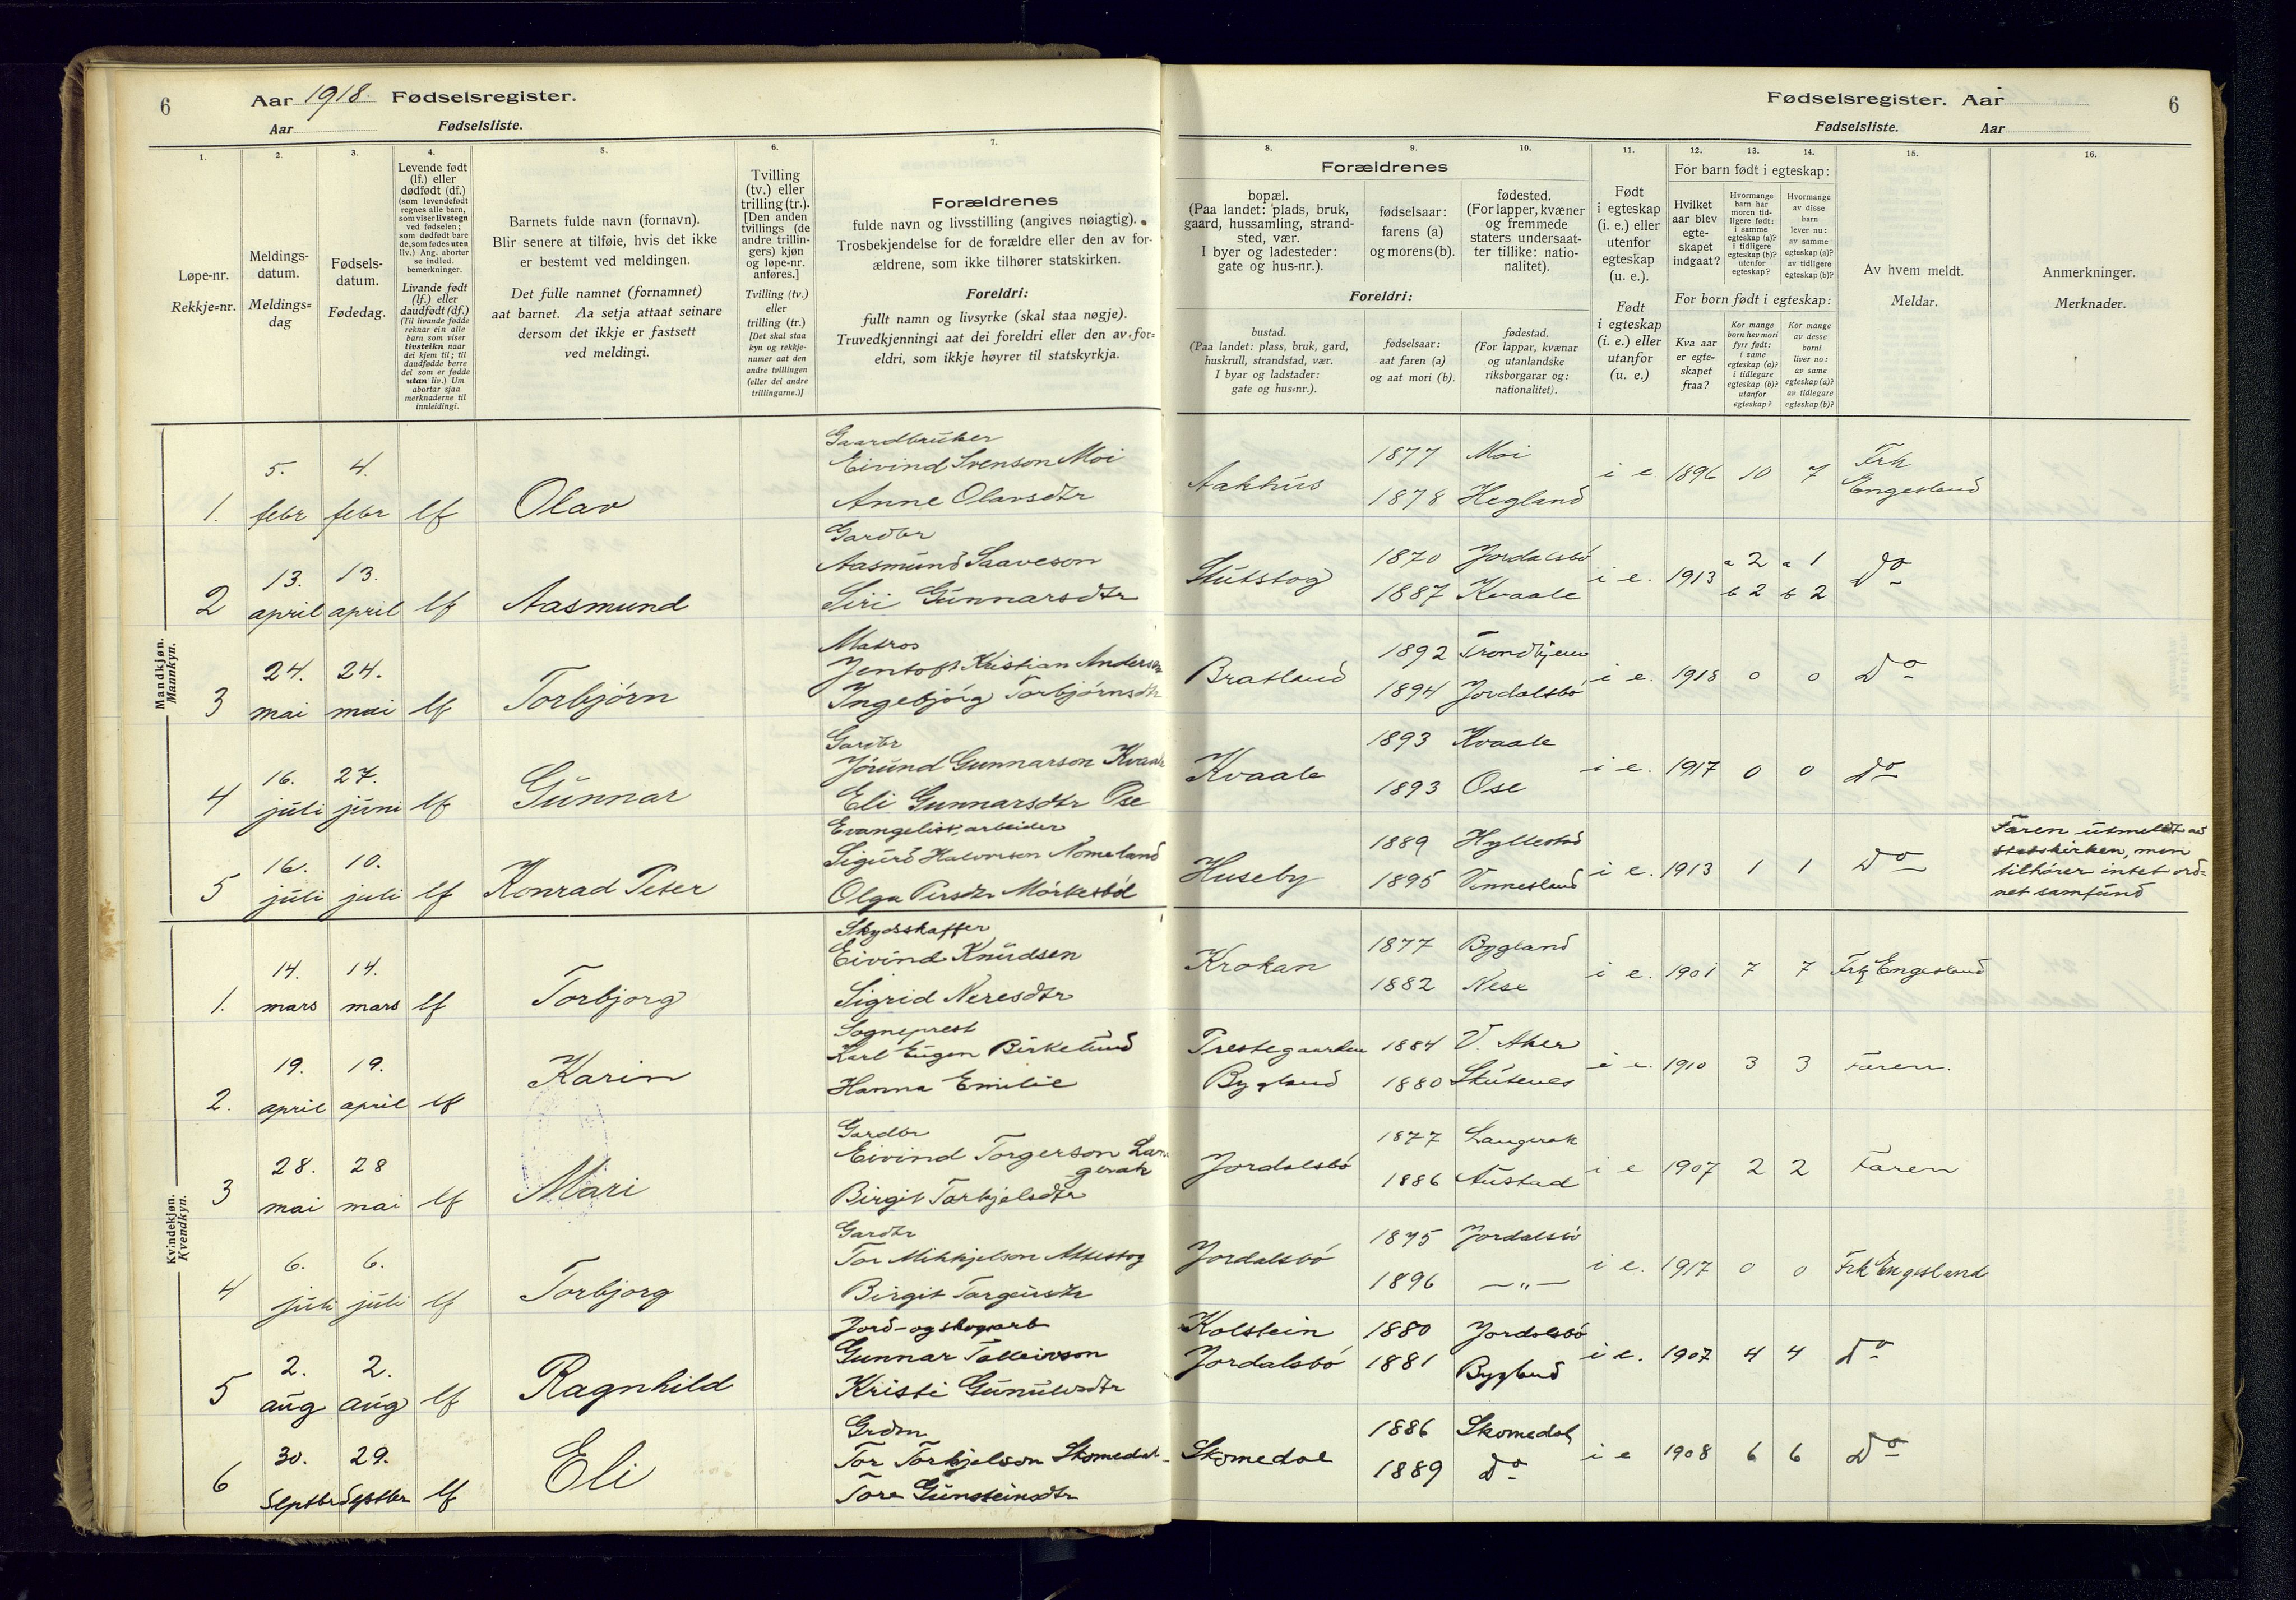 6
Aar 1918. Fødselsregister.
Aar
Fødselsliste.
1.
Løpe-nr.
Rekkje=nr.
2.
Meldings-
datum.
Meldings=
dag
3.
Fødsels-
datum.
Fødedag.
4.
Levende født
(lf.) eller
dødfødt (df.)
(som levendefødt
regnes alle barn,
som viser livstegn
ved fødselen;
som dødfødt bare
de, som fødes uten
liv.) Ang. aborter
se indled.
bemerkninger.
Livande født
(lf.) eller
daudfødt (df.)
(Til livande fødde
reknar ein alle
barn som viser
livsteikn naar
dei kjem til; til
daudfødde berre
dei som er fødde
utan liv.) Um
abortar sjaa
merknaderne til
innleidingi.
5.
Barnets fulde navn (fornavn).
Blir senere at tilføie, hvis det ikke
er bestemt ved meldingen.
Det fulle namnet (fornamnet)
aat barnet. Aa setja attaat seinare
dersom det ikkje er fastsett
ved meldingi.
6.
Tvilling
(tv.) eller
trilling (tr.).
[Den anden
tvillings (de
andre trillin-
gers) kjøn
og løpe-nr.
anføres.]
Tvilling (tv.)
eller
trilling (tr.)
[Det skal staa
kyn og rekkje-
numer aat den
andre tvillingen
(eller dei andre
trillingarne.)]
7.
Forældrenes
fulde navn og livsstilling (angives nøiagtig).
Trosbekjendelse for de forældre eller den av for-
ældrene, som ikke tilhører statskirken.
Foreldri:
fullt namn og livsyrke (skal staa nøgje).
Truvedkjenningi aat dei foreldri eller den av for=
eldri, som ikkje høyrer til statskyrkja.
Fødselsregister. Aar
6
Fødselsliste.
Aar
8.
Forældrenes
bopæl.
(Paa landet: plads, bruk,
gaard, hussamling, strand-
sted, vær.
I byer og ladesteder:
gate og hus-nr.).
Foreldri:
bustad.
(Paa landet: plass, bruk, gard,
huskrull, strandstad, vær.
I byar og ladstader:
gate og hus=nr.).
9.
fødselsaar:
farens (a)
og morens (b).
fødselsaar:
aat faren (a)
og aat mori (b).
10.
fødested.
(For lapper, kvæner
og fremmede
staters undersaat-
ter tillike: natio-
nalitet).
fødestad.
(For lappar, kvænar
og utanlandske
riksborgarar og:
nationalitet).
11.
Født
i egteskap
(i. e.) eller
utenfor
egteskap
(u. e.).
Født
i egteskap
(i. e.) eller
utanfor
(u. e.)
12.
13.
14.
For barn født i egteskap:
Hvilket
aar blev
egte-
skapet
indgaat?
Hvormange
barn har
moren tid-
ligere født:
i samme
egteskap (a)?
i tidligere
egteskap (b)?
utenfor
egteskap?
Hvormange
av disse
barn
lever nu:
av samme
egteskap (a)?
av tidligere
egteskap (b)?
For born født i egteskap:
Kva aar
er egte=
skapet
fraa?
Kor mange
born hev mori
fyrr født:
i same
egteskap (a)?
i tidlegare
egteskap (b)?
utanfor
egteskap?
Kor mange
av desse
borni
liver no:
av same
egteskap (a)?
av tidlegare
egteskap (b)?
15.
Av hvem meldt.
Meldar.
16.
Anmerkninger.
Merknader.
Mandkjøn.
Mannkyn.
Gaardbruker
5. 4. Eivind Svenson Moi 1877 Moi
1. febr febr lf Olav Anne Olavsdtr Aakhus 1878 Hegland i e. 1896 10 7 Frk Engesland
Gardbr
13. 13. Aasmund Saaveson 1870 Jordalsbö a 2 a 1
2 april april lf Aasmund Siri Gunnarsdtr Stutstog 1887 Kvaale i e. 1913 b 2 b 2 Do
Matros
24. 24. Jentoft Kristian Andersen 1892 Trondhjem
3 mai mai lf Torbjörn Ingebjörg Torbjörnsdtr Bratland 1894 Jordalsbö i e. 1918 0 0 Do
Gardbr
16. 27. Jörund Gunnarson Kvaale 1893 Kvaale
4 juli juni lf Gunnar Eli Gunnarsdtr Ose Kvaale 1893 Ose i e. 1917 0 0 Do
Evangelist, arbeider
16. 10. Sigurd Halvorsen Nomeland 1889 Hyllestad
5 juli juli lf Konrad Peter Olga Persdtr Mörkesböl Huseby 1895 Vennesland i e. 1913 1 1 Do
Faren utmeldt av
statskirken, men
tilhörer intet ord=
net samfund
Kvindekjøn.
Kvendkyn.
Skydsskaffer
14. 14. Eivind Knudsen 1877 Bygland
1. mars mars lf Torbjorg Sigrid Neresdtr Krokan 1882 Nese i e. 1901 7 7 Frk Engesland
Sogneprest
19. 19. Karl Eugen Birkelund Prestegaarden 1884 V. Aker
2. april april lf Karin Hanna Emilie Bygland 1880 Skutenes i e. 1910 3 3 Faren.
Gardbr
28. 28 Eivind Torgerson Lan
gerak 1877 Langerak
3 mai mai lf Mari Birgit Torkjelsdtr Jordalsbö 1886 Austad i e 1907 2 2 Faren
Gardbr
6. 6. Tor Mikkjelson 1895 Jordalsbö
4 juli juli lf Torbjorg Birgit Torgeirsdtr Jordalsbö 1896 — " — i e. 1917 0 0 Frk Engesland
Jord- og skogarb
2. 2. Gunnar Tolleivson Kolstein 1880 Jordalsbö
5 aug aug lf Ragnhild Kristi Gunulvsdtr Jordalsbö 1881 Bygland i e. 1907 4 4 Do
30. 29. Tor Torkjelson Skomedal 1886 Skomedal
6 Septbr Septbr lf Eli Tore Gunsteinsdtr Skomedal 1889 Do i e 1908 6 6 Do